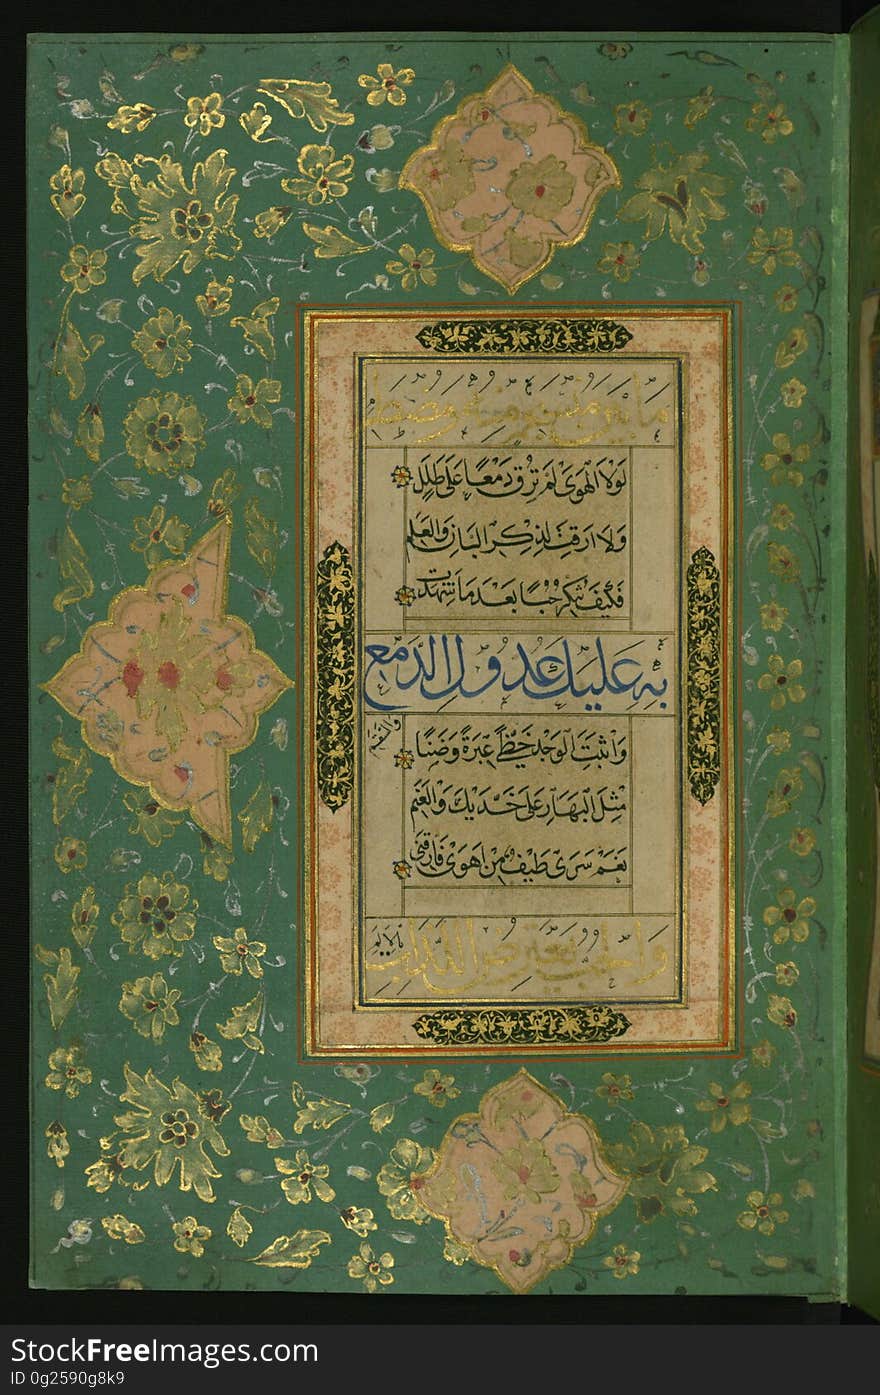 ما بين منسجم منه ومضطرم
لَوْلَا الْهَوَى لَمْ تُرِقْ دَمْعًا عَلَى طَلَلِ
وَلَا اَرِقْتَ لِذِكْرِ الْبَانِ وَالْعَلَمِ
فَكَيْفَ تُنْكِرُ حُبًّا بَعْدَ مَا شَهِدَتْ
بِهِ عَلَيْكَ عُدُولُ الدَّمْعِ
وَالسَّقَمِ
وَاَثْبَتَ الْوَجْدُ خَطَّىْ عَبْرَةٍ وَضَنًا
مِثْلَ الْبَهَارِ عَلَى خَدَّيْكَ وَالْعَنَمِ
نَعَمْ سَرَى طَيْفُ مَنْ اَهْوَى فَاَرَّقَنِى
وَالْحُبُّ يَعْتَرِضُ اللَّذَّاتِ
بالالم
StockFreeImages.com
ID 0g2590g8k9